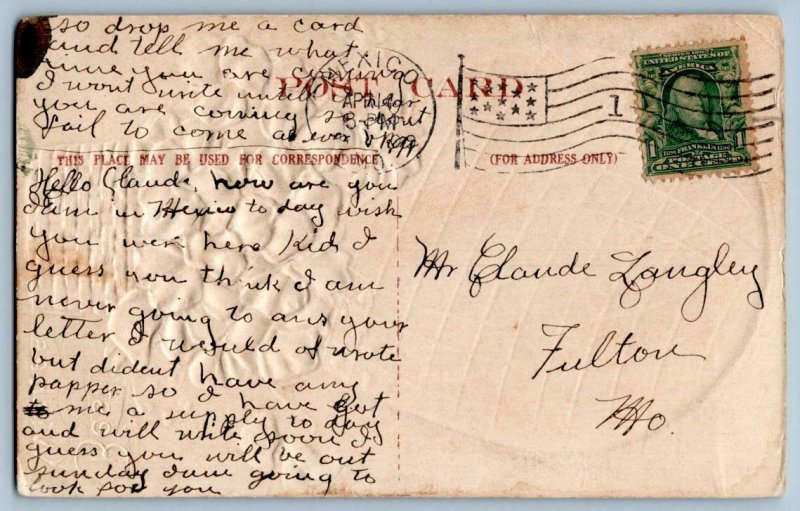 so drop me a card
and tell me what
time you are coming
I wont write until I hear
you are coming so dont
fail to come as ever
POST CARD
MEXICO
APR 14
3-PM
MO.
1
SERIES 1902
UNITED STATES OF AMERICA
FRANKLIN
POSTAGE
ONE CENT
THIS PLACE MAY BE USED FOR CORRESPONDENCE
(FOR ADDRESS ONLY)
Hello Claude, how are you
I am in Mexico to day wish
you wer here Kid I
guess you think I am
never going to ans your
letter I would of wrote
but dident have any
papper so I have got
me a supply to day
and will write soon I
guess you will be out
sunday I am going to
look for you
Mr Claude Langley
Fulton
Mo.